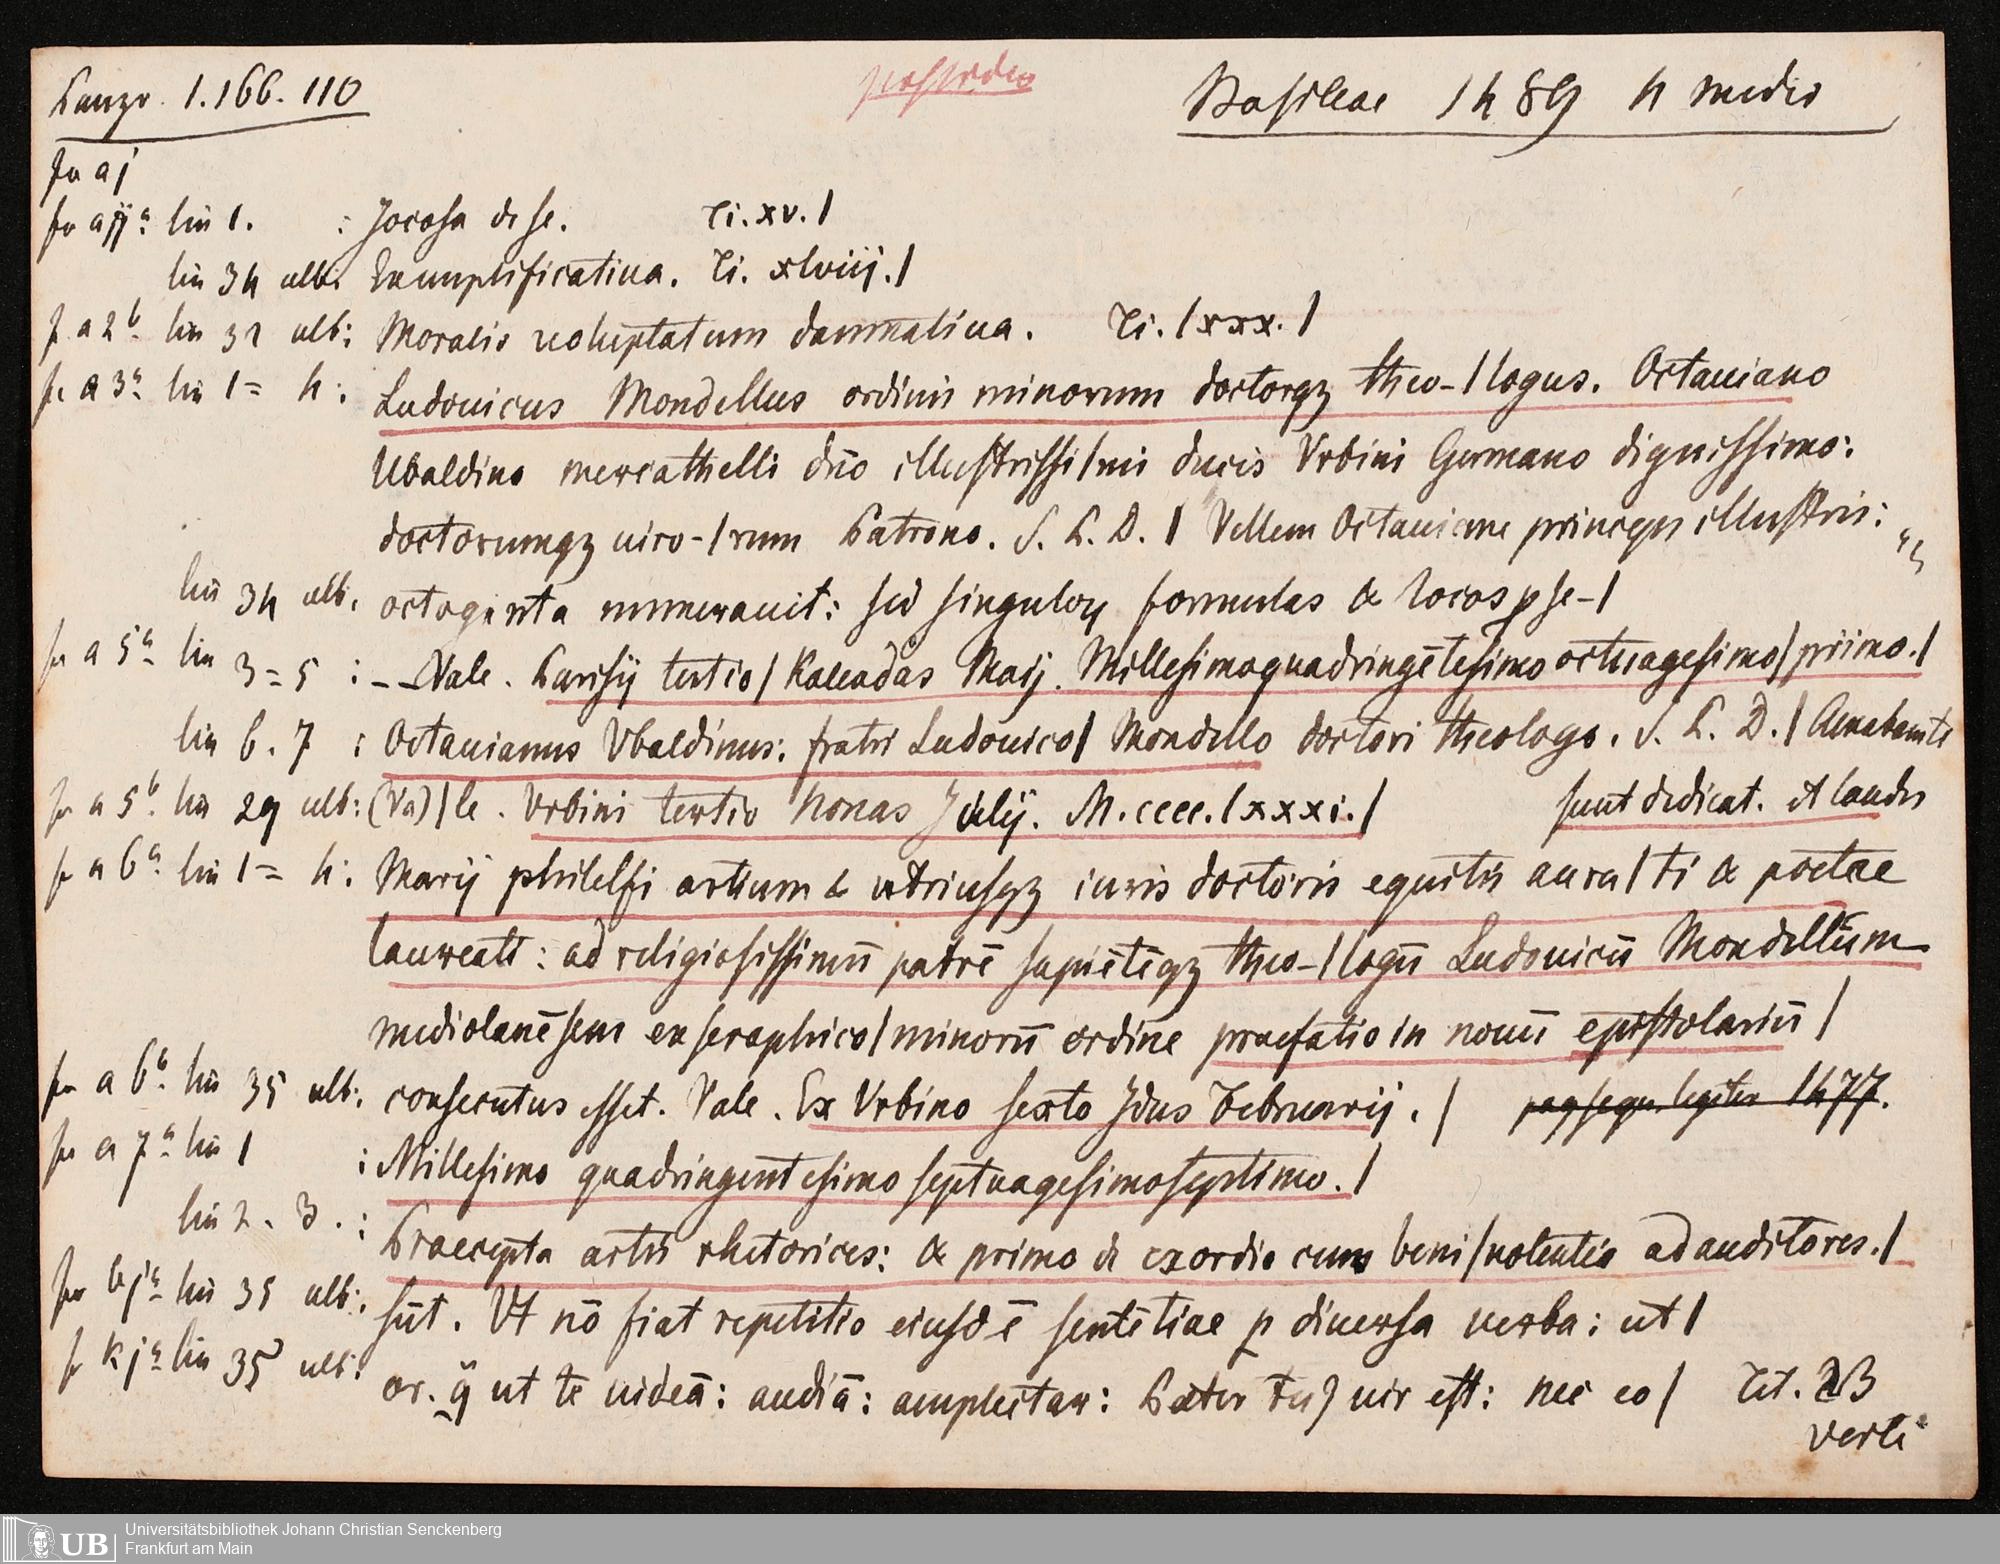 Panzr. 1.166.110
possedeo
Basileae 1489 4 medio
fo aj
fo ajja lin 1. : Jocosa de se. Ti. xv. |
lin 34 ult: Exemplificatiua. Ti. xlviij. |
f a2b. lin 32 ult: Moralis uoluptatum damnatiua. Ti. lxxx. |
fo a3a. lin 1= 4: Ludouicus Mondellus ordinis minorum doctorqz theo-|logus. Octauiano
Ubaldino mercathelli dn̄o illustrissi|mi ducis Vrbini Germano dignissimo:
doctorumqz uiro-|rum Patrono. S. P. D. | Vellem Octauiane princeps illustris:
lin 34 ult: octoginta numerauit: sed singuloꝝ formulas & locos ꝑ se-|
fo a 5a. lin 3=5 : -- Vale. Parisij tertio | Kalēdas Maij. Millesimoquadringētesimo octuagesimo | primo. |
lin 6. 7 : Octauianus Vbaldinus: fratri Ludouico | Mondello doctori theologo. S. P. D. | Amabam te
fo a 5b. lin 29 ult: (Va)|le. Vrbini tertio Nonas Julij. M.cccc.lxxxi. | sunt dedicat. et laudes
fo a 6a. lin 1= 4: Marij philelfi artium & utriusqz iuris doctoris equitis aura|ti & poetae
laureati: ad religiosissimū patrē sapiētēqz theo-|logū Ludouicū Mondellum
mediolanēsem ex seraphico | minorū ordine praefatio in nouū epistolariū |
fo a 6b. lin 35 ult: consecutus esset. Vale. Ex Vrbino sexto Jdus Februarij. | pag sequ. legitur 1477.
fo a 7a lin 1 : Millesimo quadringentesimo septuagesimoseptimo. |
lin 2. 3. : Praecepta artis rhetorices: & primo de exordio cum beni|uolentia ad auditores. |
fo bja lin 35 ult: sūt. Vt nō fiat repetitio eiusdē sentētiae ꝑ diuersa uerba: ut |
fo kja lin 35 ult: or. q̄ ut te uideā: audiā: amplectar: Pater tuꝰ uir est: nec eo | Tit. 23
verte
Universitätsbibliothek Johann Christian Senckenberg
UB Frankfurt am Main